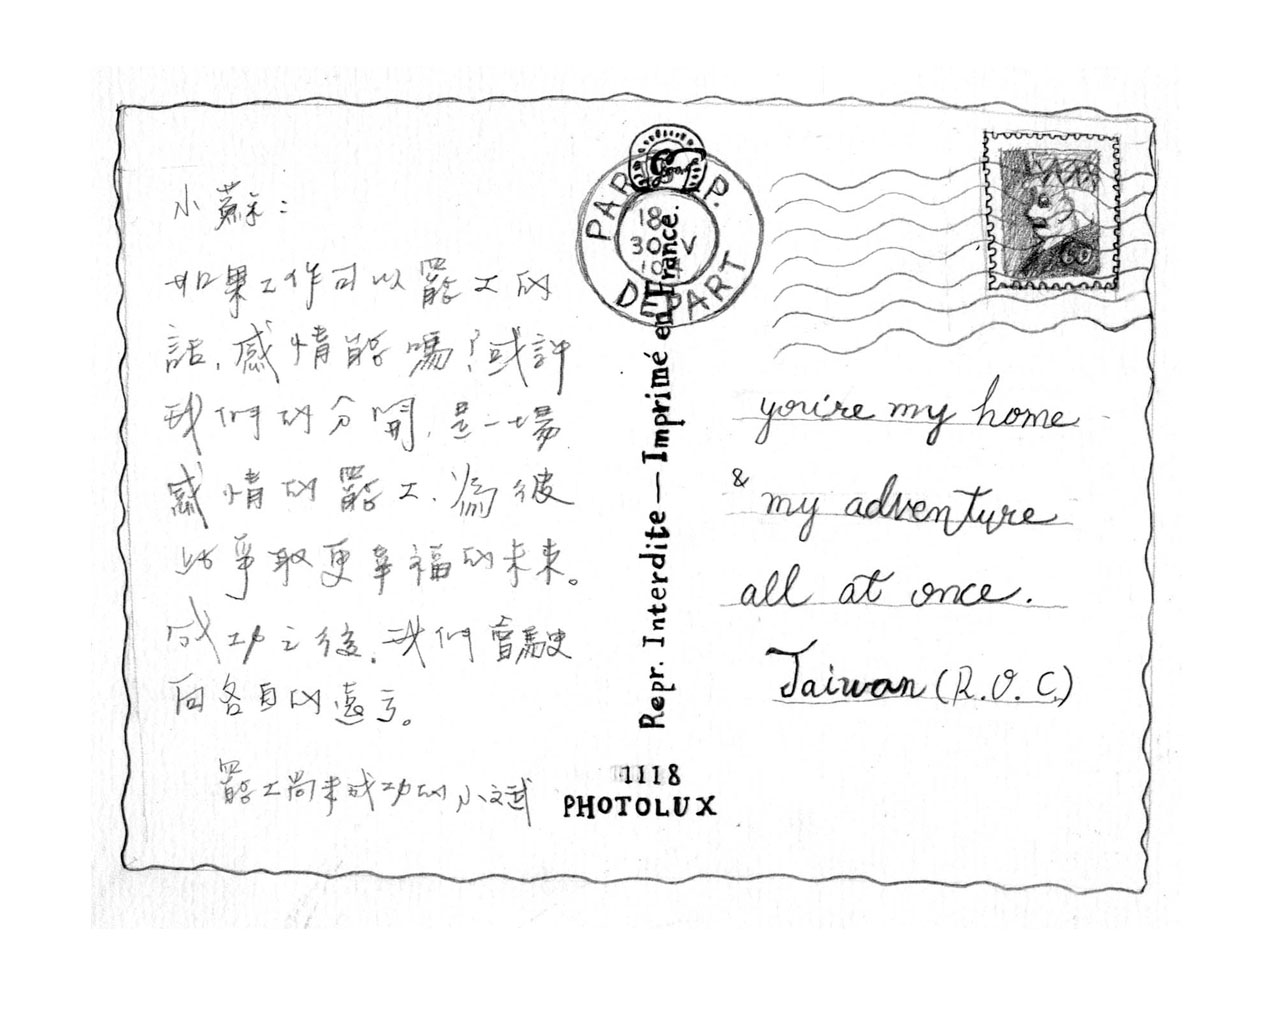 小蘇：
如果工作可以罷工的
話，感情能嗎？或許
我們的分開，是一場
感情的罷工，為彼
此爭取更幸福的未來。
成功之後，我們會駛
向各自的遠方。
罷工尚未成功的小文武
PAR P.
18
30 V
DEPART
Repr. Interdite — Imprimé en France.
1118
PHOTOLUX
60
you're my home
& my adventure
all at once.
Taiwan (R.O.C.)